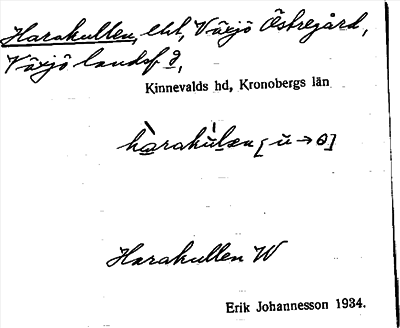 Harakullen, lht, Växjö Östregård,
Växjö landsf d,
Kinnevalds hd, Kronobergs län
hàrakúlæn [u → ɵ]
Harakullen W
Erik Johannesson 1934.